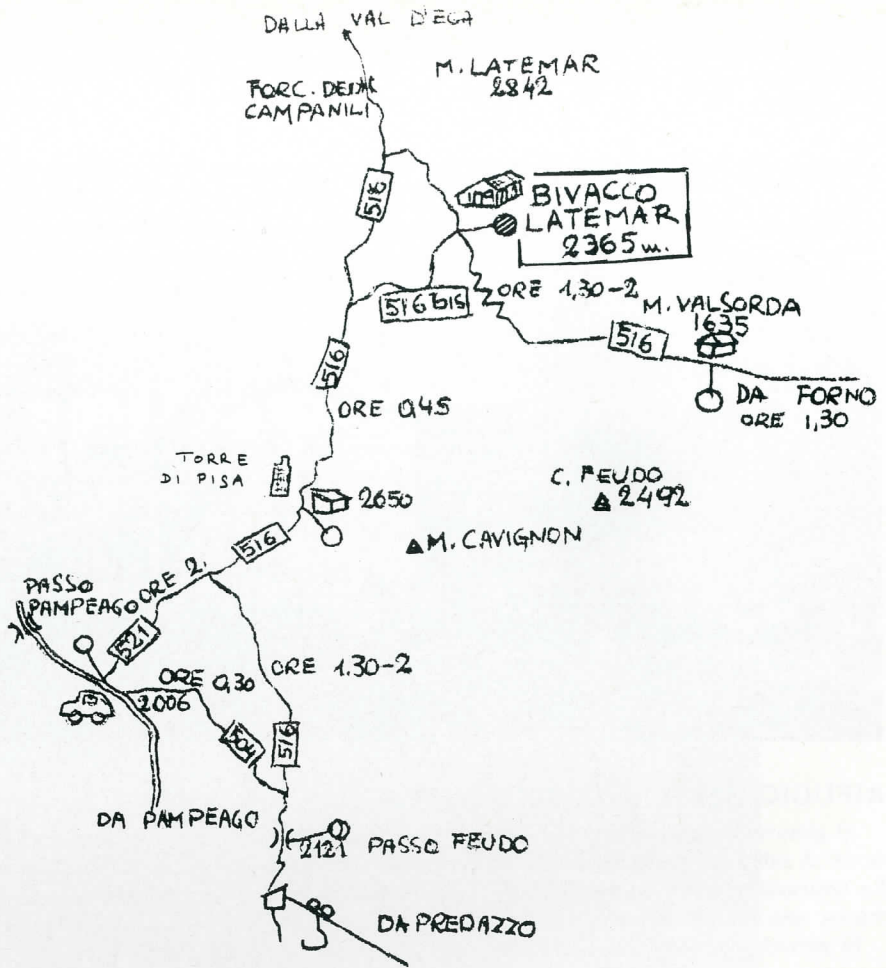 DALLA VAL D'EGA
M. LATEMAR
2842
FORC. DEI
CAMPANILI
516
BIVACCO
LATEMAR
2365 m.
516 bis
ORE 1,30-2
M. VALSORDA
1635
516
516
DA FORNO
ORE 1,30
ORE 0,45
TORRE
DI PISA
2650
C. FEUDO
2492
M. CAVIGNON
516
ORE 2.
PASSO
PAMPEAGO
521
ORE 0,30
ORE 1.30-2
2006
504
516
DA PAMPEAGO
2121 PASSO FEUDO
DA PREDAZZO